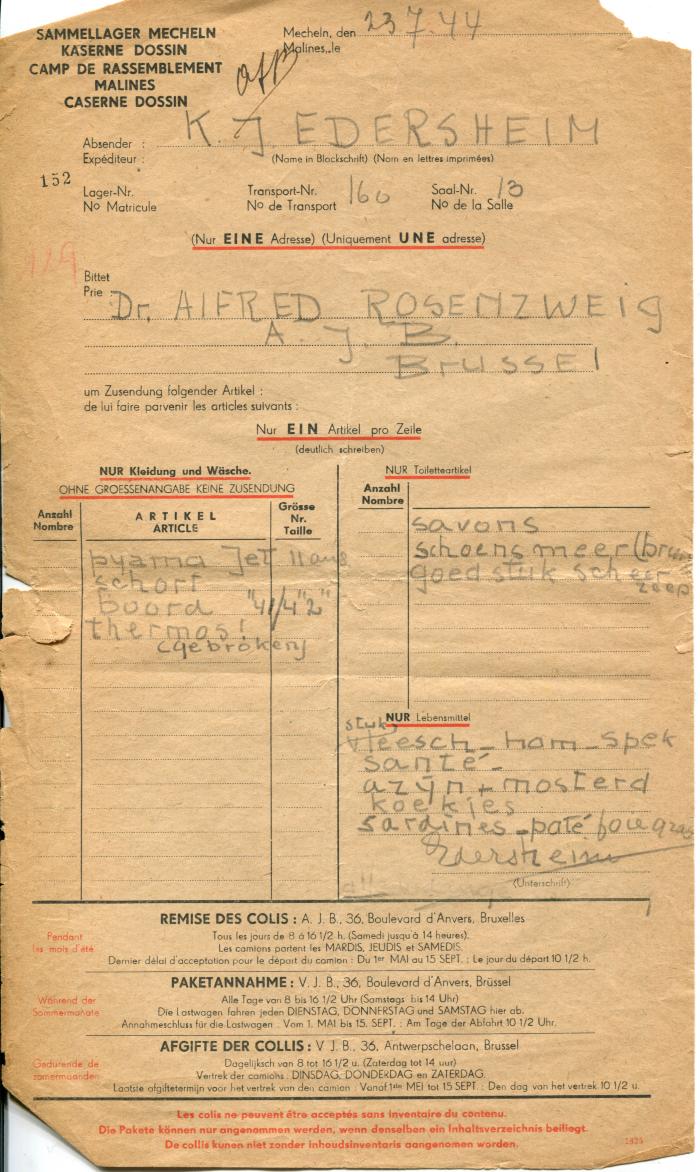 SAMMELLAGER MECHELN
KASERNE DOSSIN
CAMP DE RASSEMBLEMENT
MALINES
CASERNE DOSSIN
Mecheln, den 23 7.44
Malines, le
Absender : K. J. EDERSHEIM
Expéditeur :
(Name in Blockschrift) (Nom en lettres imprimées)
152
Lager-Nr. Transport-Nr. 160 Saal-Nr. 13
No Matricule No de Transport No de la Salle
(Nur EINE Adresse) (Uniquement UNE adresse)
Bittet
Prie : Dr. AlFRED ROSENZWEIG
A. J. B.
BRUSSEl
um Zusendung folgender Artikel :
de lui faire parvenir les articles suivants :
Nur EIN Artikel pro Zeile
(deutlich schreiben)
NUR Kleidung und Wäsche.
OHNE GROESSENANGABE KEINE ZUSENDUNG
Anzahl
Nombre
ARTIKEL
ARTICLE
Grösse
Nr.
Taille
pyama Jet 11 ans
schort
boord "41/4"2"
thermos!
(gebroken)
NUR Toiletteartikel
Anzahl
Nombre
savons
schoensmeer (bruin
goed stuk scheer
zeep
NUR Lebensmittel
stuk
vleesch - ham - spek
santé -
azijn + mosterd
koekjes
sardines - paté foie gras
Edersheim
(Unterschrift)
REMISE DES COLIS : A. J. B., 36, Boulevard d'Anvers, Bruxelles
Pendant
les mois d'été
Tous les jours de 8 à 16 1/2 h. (Samedi jusqu'à 14 heures).
Les camions partent les MARDIS, JEUDIS et SAMEDIS.
Dernier délai d'acceptation pour le départ du camion : Du 1er MAI au 15 SEPT. : Le jour du départ 10 1/2 h.
PAKETANNAHME : V. J. B., 36, Boulevard d'Anvers, Brüssel
Während der
Sommermonate
Alle Tage von 8 bis 16 1/2 Uhr (Samstags bis 14 Uhr)
Die Lastwagen fahren jeden DIENSTAG, DONNERSTAG und SAMSTAG hier ab.
Annahmeschluss für die Lastwagen . Vom 1. MAI bis 15. SEPT. : Am Tage der Abfahrt 10 1/2 Uhr.
AFGIFTE DER COLLIS : V. J. B. 36, Antwerpschelaan, Brussel
Gedurende de
zomermaanden
Dagelijksch van 8 tot 16 1/2 u. (Zaterdag tot 14 uur)
Vertrek der camions : DINSDAG, DONDERDAG en ZATERDAG.
Laatste afgiftetermijn voor het vertrek van den camion : Vanaf 1ste MEI tot 15 SEPT. : Den dag van het vertrek 10 1/2 u.
Les colis ne peuvent être acceptés sans inventaire du contenu.
Die Pakete können nur angenommen werden, wenn denselben ein Inhaltsverzeichnis beiliegt.
De collis kunen niet zonder inhoudsinventaris aangenomen worden.